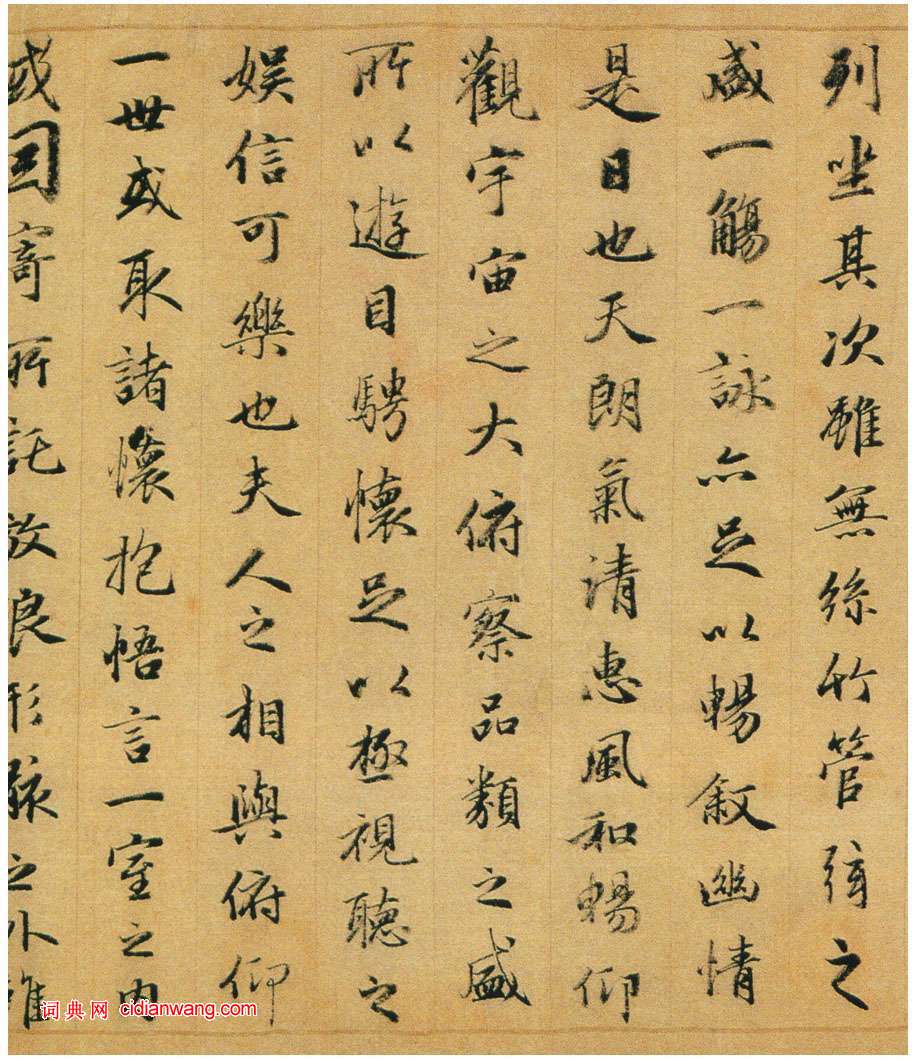 列坐其次雖無絲竹管弦之
盛一觴一詠亦足以暢敘幽情
是日也天朗氣清惠風和暢仰
觀宇宙之大俯察品類之盛
所以遊目騁懷足以極視聽之
娛信可樂也夫人之相與俯仰
一世或取諸懷抱悟言一室之內
或因寄所託放浪形骸之外雖
词典网 cidianwang.com